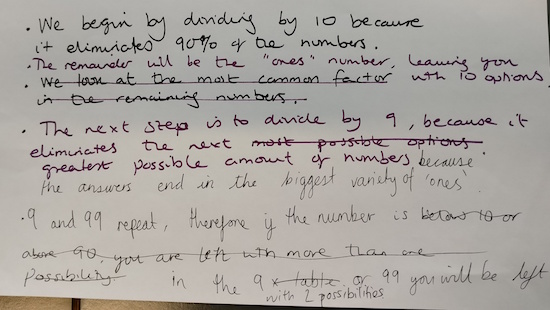 . We begin by dividing by 10 because
it eliminates 90% of the numbers.
. The remainder will be the "ones" number, leaving you
. We look at the most common factor with 10 options
in the remaining numbers.
. The next step is to divide by 9, because it
eliminates the next most possible options
greatest possible amount of numbers because
the answers end in the biggest variety of 'ones'.
. 9 and 99 repeat, therefore if the number is below 10 or
above 90, you are left with more than one
possibility. in the 9 x table or 99 you will be left
with 2 possibilities